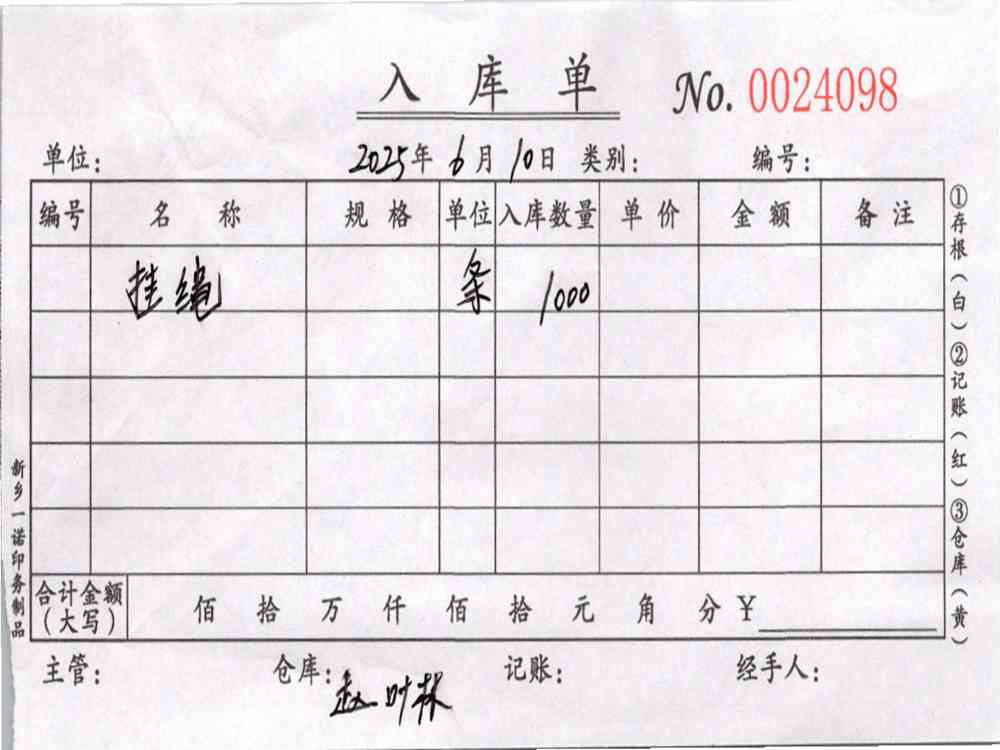 入库单 No. 0024098
单位： 2025年 6月 10日 类别： 编号：
编号 名称 规格 单位 入库数量 单价 金额 备注
挂绳 条 1000
合计金额（大写） 佰 拾 万 仟 佰 拾 元 角 分 ¥
主管： 仓库：赵叶林 记账： 经手人：
①存根（白）②记账（红）③仓库（黄）
新乡一诺印务制品